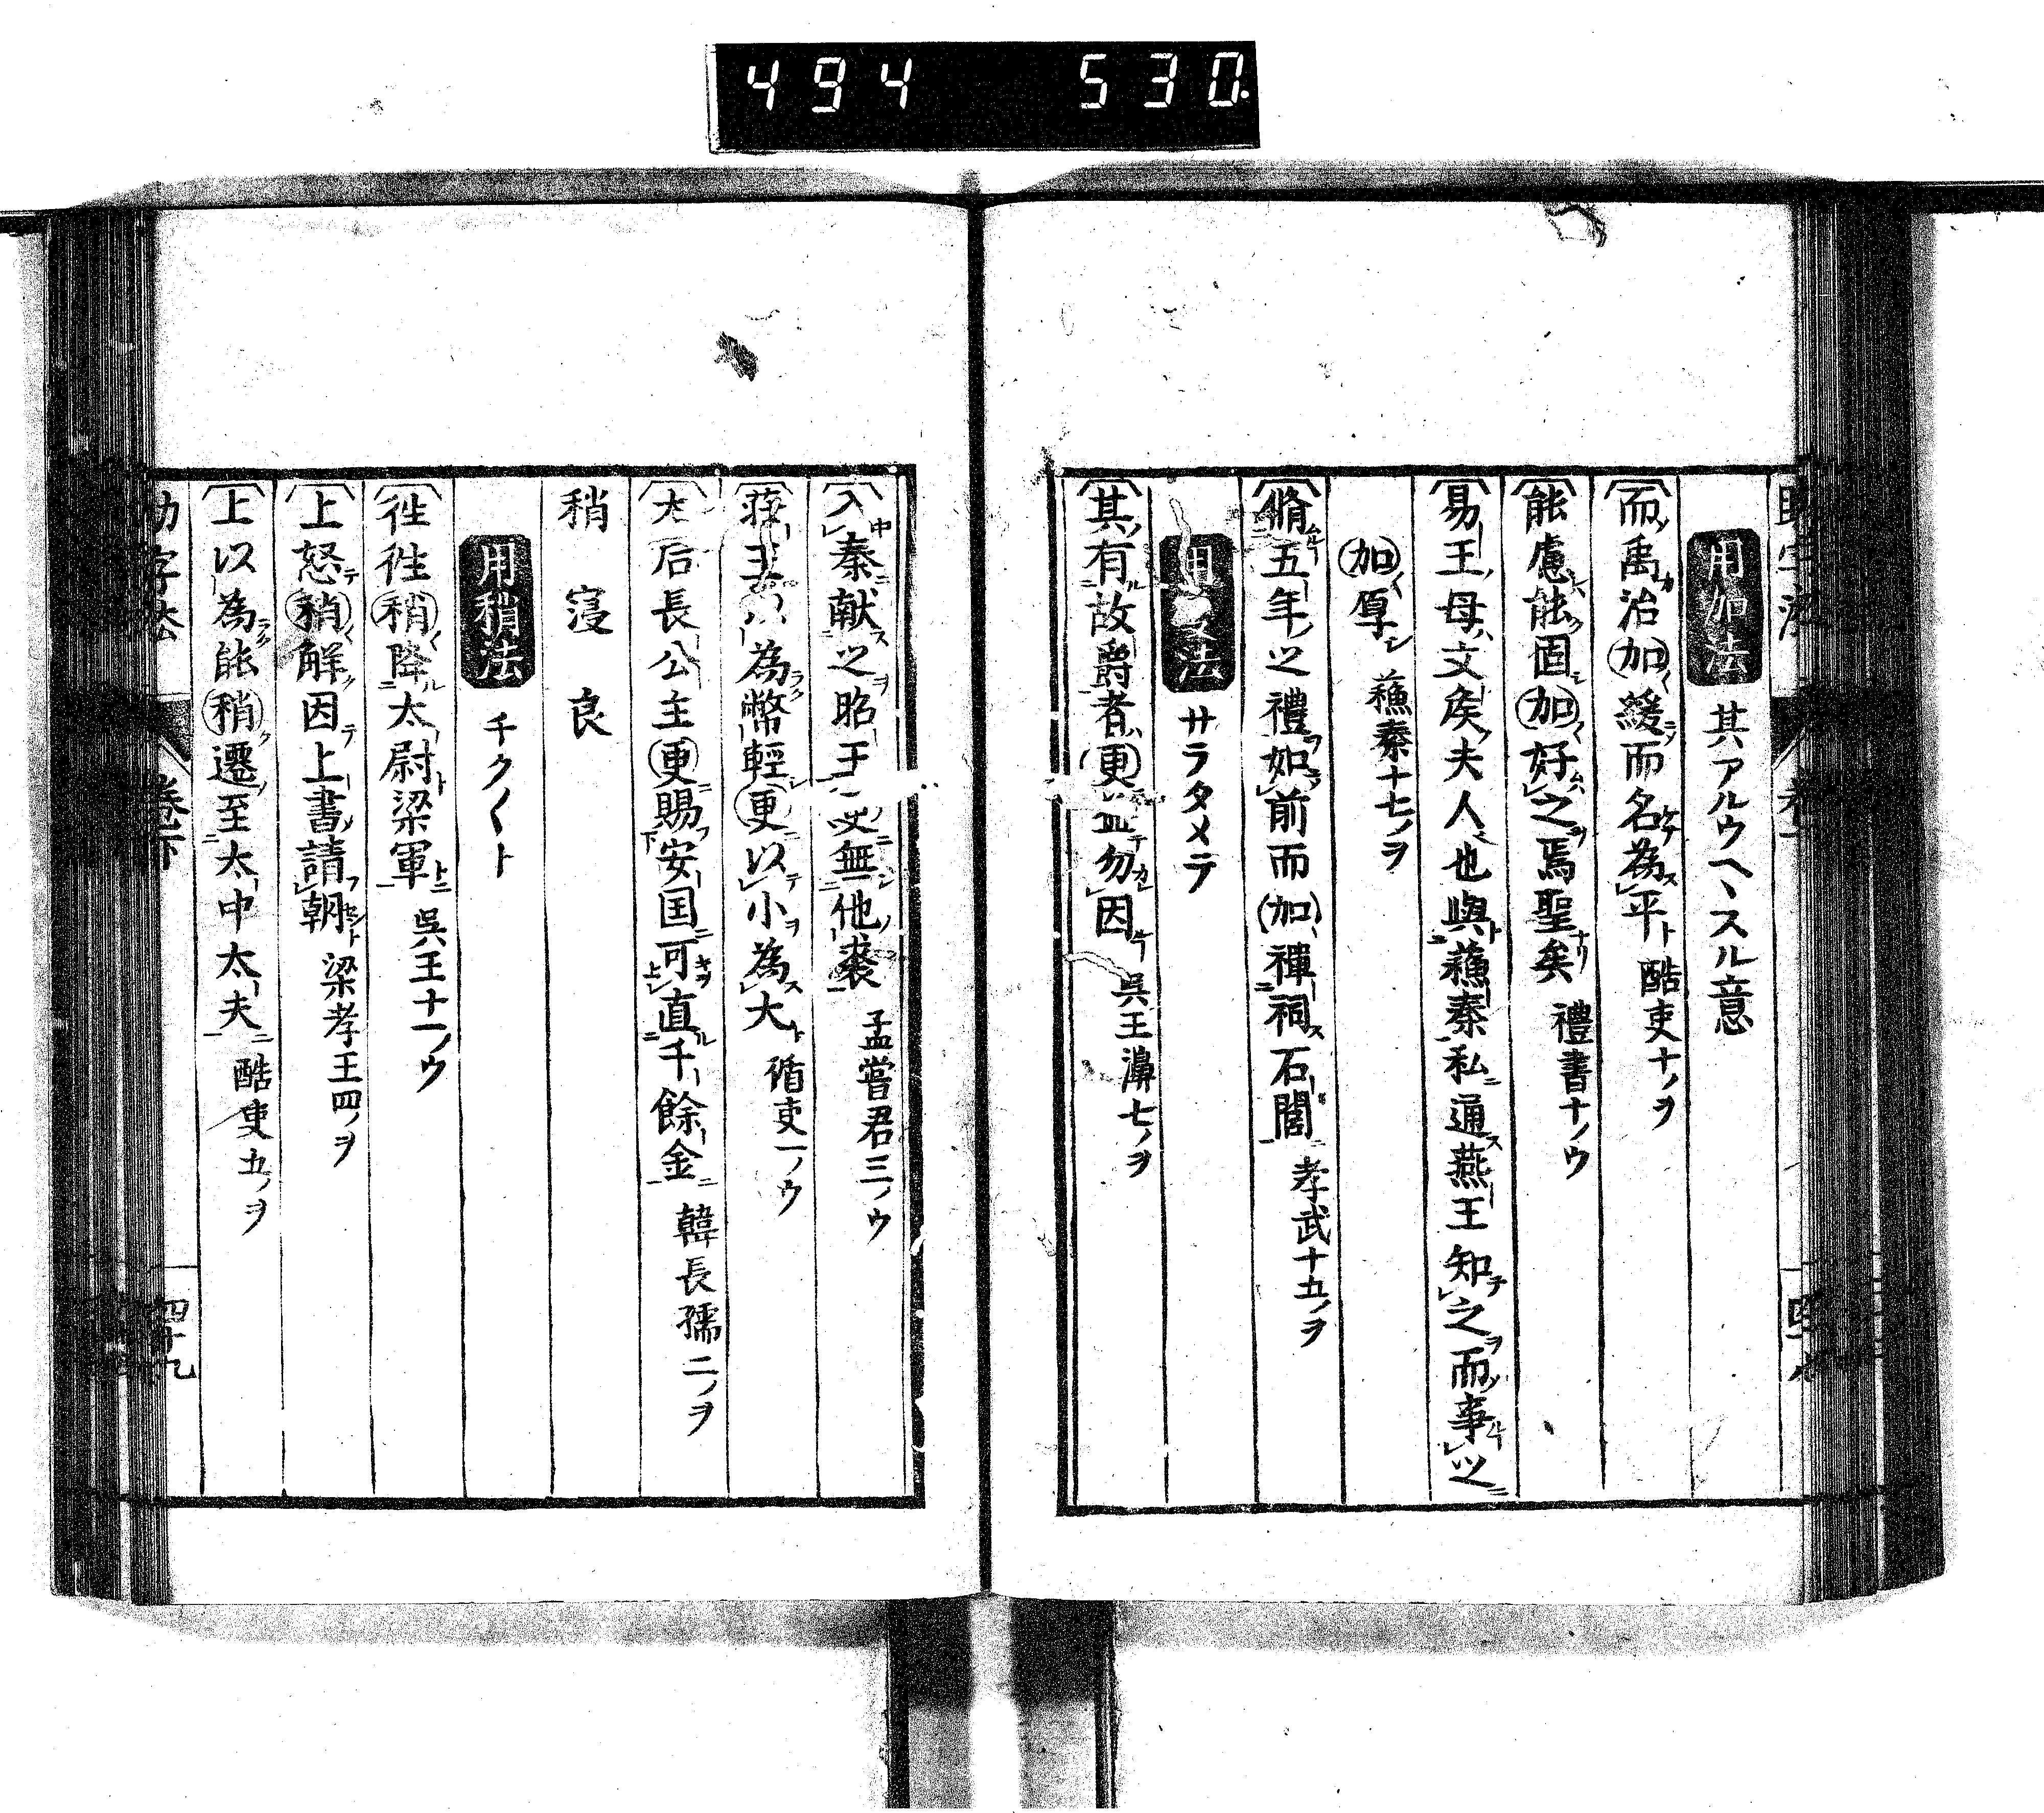 494 530.
用加法 其アルウヘヽスル意
而禹治加緩而名為平 酷吏十ノヲ
能慮能固加好之焉聖矣 禮書十ノウ
易王母文矦夫人也與蘓秦私通燕王知之而事之
加厚 蘓秦十七ノヲ
脩五年之禮如前而加禪祠石閭 孝武十五ノヲ
用 法 サラタメテ
其有故爵者更益勿因 呉王濞七ノヲ
入秦献之昭王更無他裘 孟嘗君三ノウ
莊王以為幣輕更以小為大 循吏一ノウ
太后長公主更賜安国可直千餘金 韓長孺二ノヲ
稍 寖 良
用稍法 チク〱ト
徃徃稍降太尉梁軍 呉王十一ノウ
上怒稍解因上書請朝 梁孝王四ノヲ
上以為能稍遷至太中太夫 酷吏九ノヲ
助字法 卷下 四十九